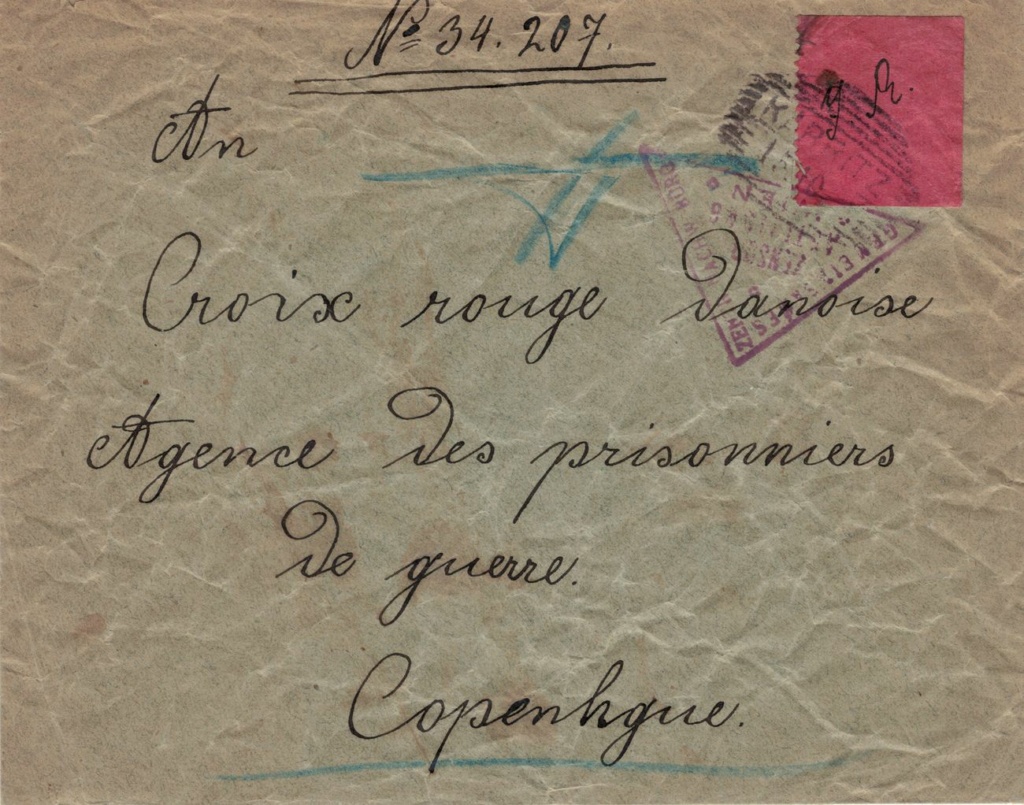 № 34.207.
An
Croix rouge Danoise
Agence des prisonniers
de guerre.
Copenhgue.